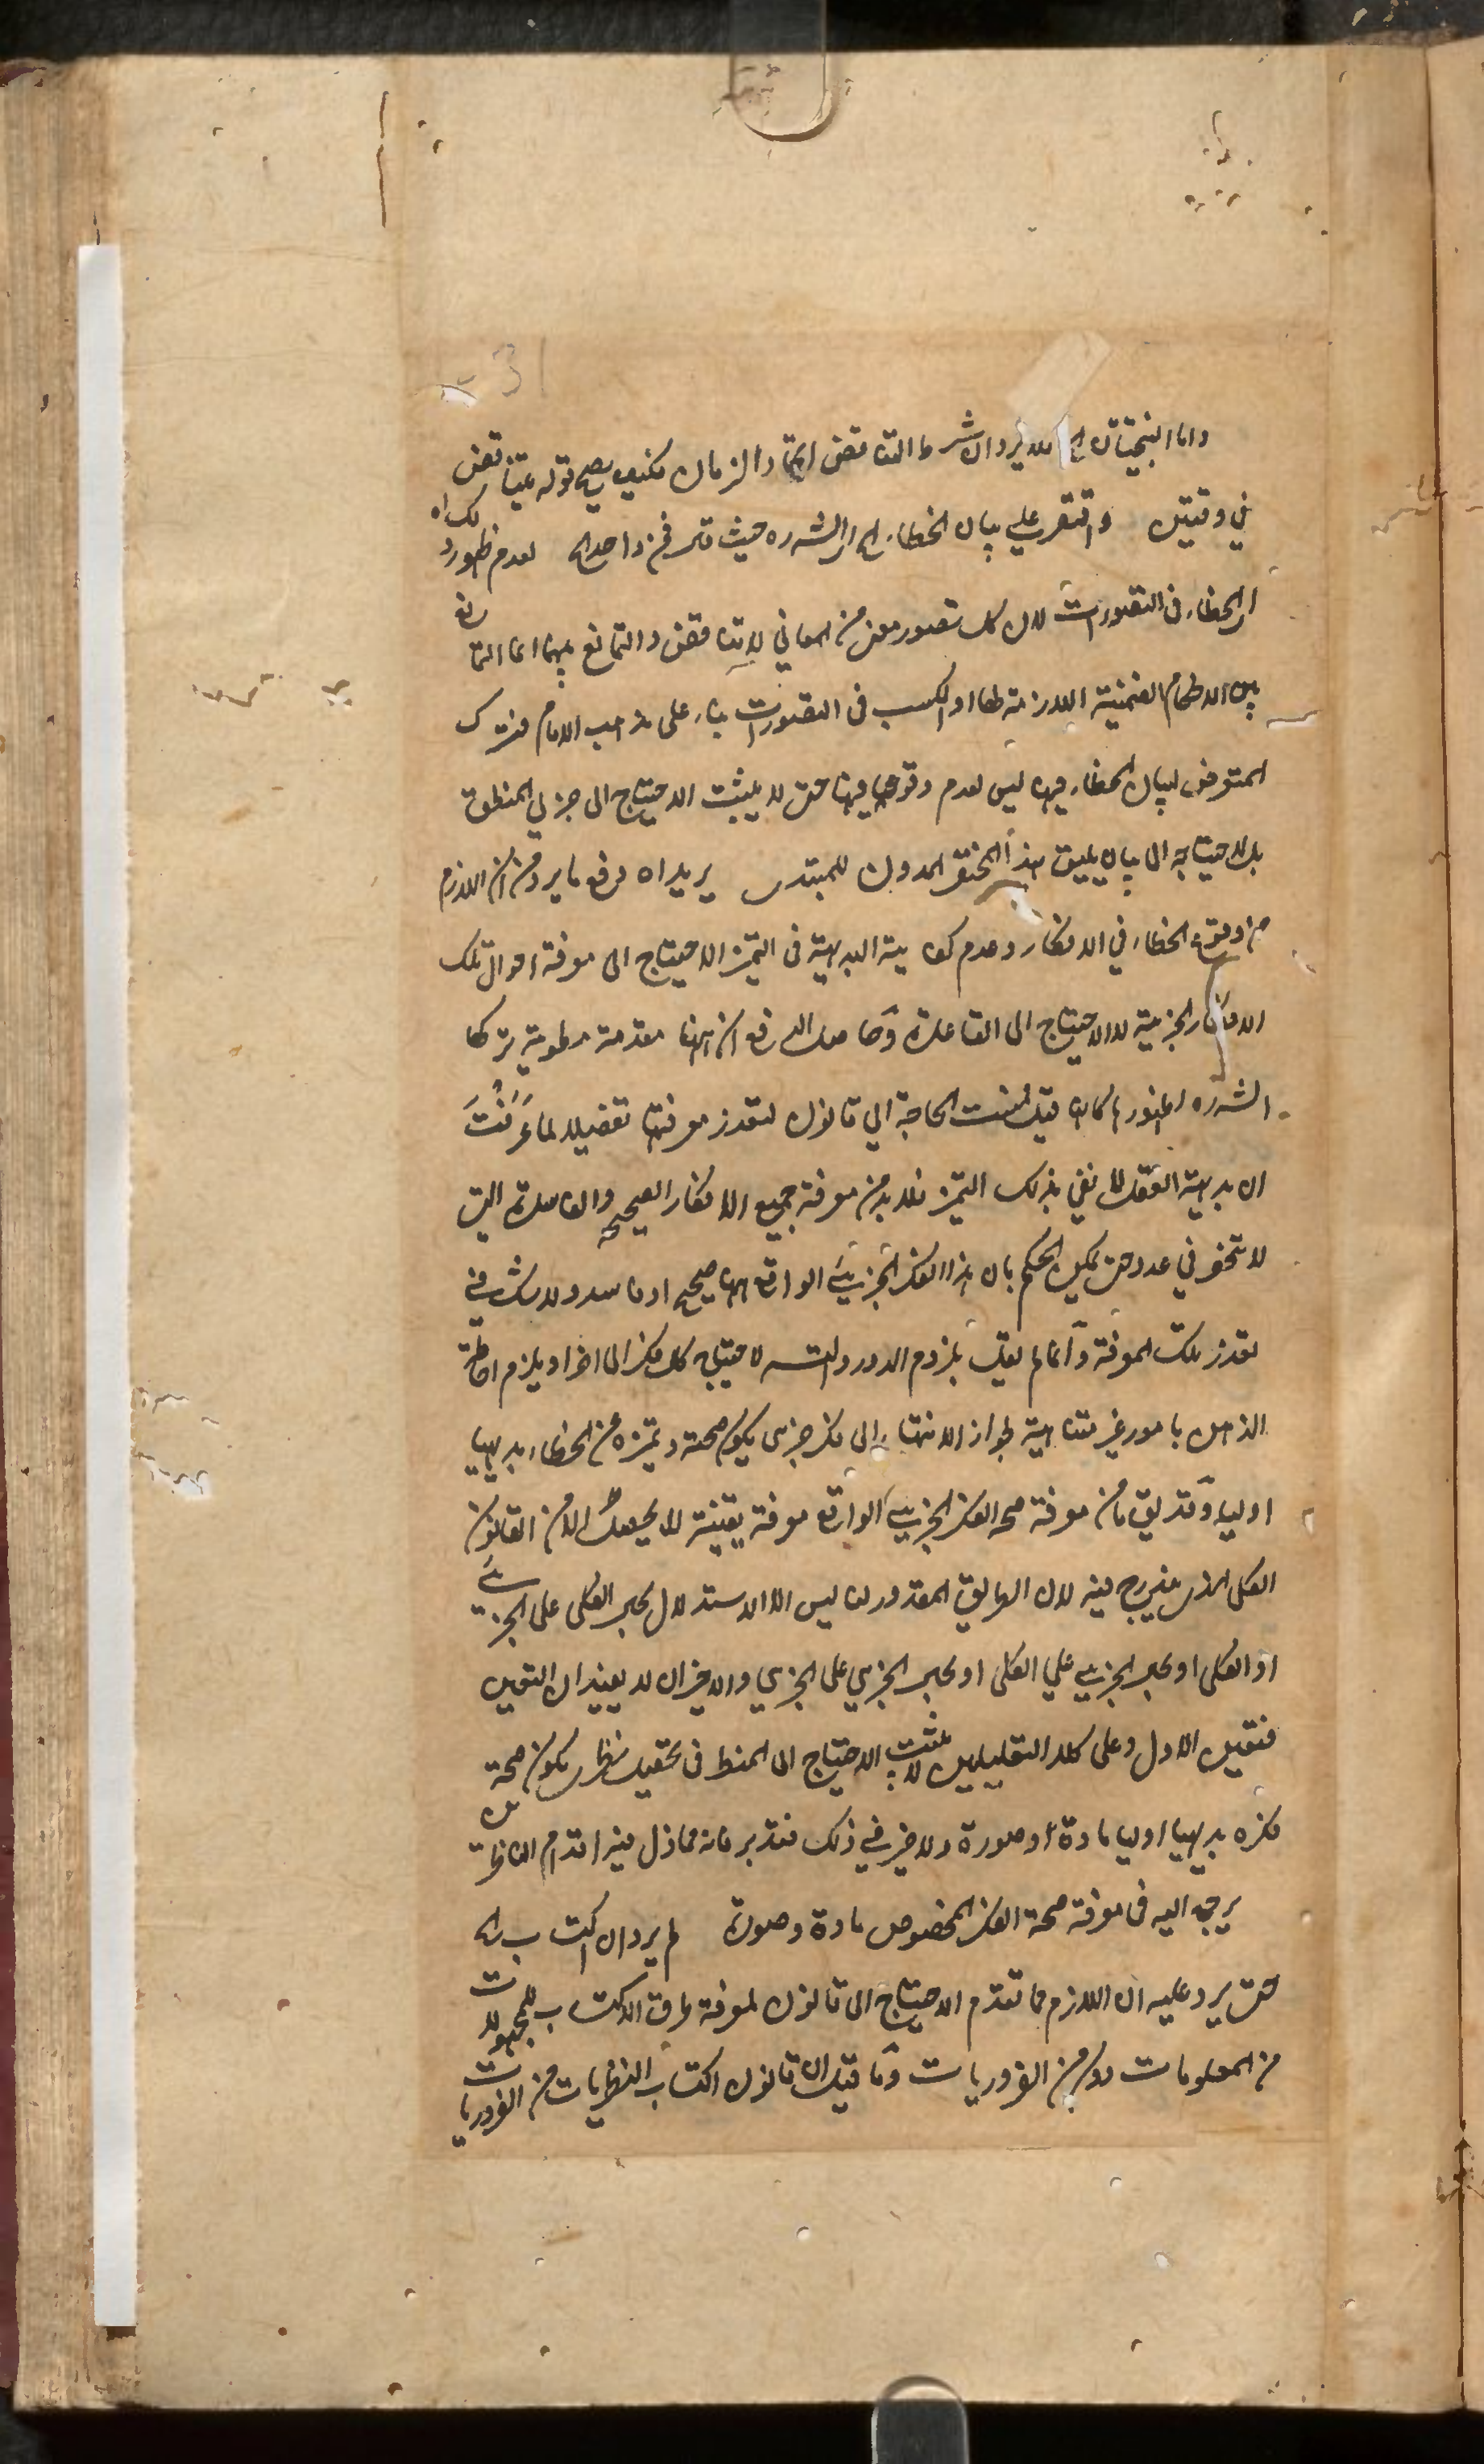 31
واما النتيجتان الخ فلا يرد ان شرط التناقض اتحاد الزمان فكيف يصح قوله يتناقض
في وقتين واقتصر على بيان الخطاء الخ اى الشه ره حيث قال فى واحد الخ لعدم ظهور ذلك اه
اى الخطاء فى التصورات لان كل تصور معنى من المعاني لا يتناقض والتمانع بينهما انما التمانع
بين الاحكام الضمنية اللازمة لها او الكسب فى التصورات بناء على مذهب الامام فترك
التعرض لبيان الخطاء فيها ليس لعدم وقوعها فيها حتى لا يثبت الاحتياج الى جزئي المنطق
بل لاحتياجه الى بيان يليق بهذا المختصر المدون للمبتدى يريد اه دفع ما يرد من ان اللازم
من وقوع الخطاء في الافكار وعدم كفاية البديهة فى التميز الاحتياج الى معرفة احوال تلك
الافكار الجزئية لا الاحتياج الى القاعدة وحاصل الدفع ان ههنا مقدمة مطوية تركها
الشه ره لظهورها كانه قيل فمست الحاجة الي قانون لتعذر معرفتها تفصيلا لما عرفت
ان بديهة العقل لا تفي بذلك التميز فلا بد من معرفة جميع الافكار الصحيحه والفاسدة التى
لا تنحصر في عدد حتى يمكن الحكم بان هذا الفكر الجزئي الواقع ههنا صحيح او فاسد ولا شك في
تعذر تلك المعرفة وانما لم يقل بلزوم الدور والتسه لاحتياج كل فكر الى اخر او يلزم احاطة
الذهن بامور غير متناهية لجواز الانتهاء الى فكر جزئى يكون صحته وتميزه من الخطاء بديهيا
اوليا وقد يق ما من معرفة صحة الفكر الجزئي الواقع معرفة يقينية لا يحصل الا من القانون
الكلى الذى يندرج فيه لان الطريق المقدور لنا ليس الا الاستدلال بحال الكلى على الجزئي
او الكلى او بحال الجزئي علي الكلى او بحال الجزئي على الجزئي والاخيران لا يفيدان اليقين
فتعين الاول وعلى كلا التعليلين لا يثبت الاحتياج الى المنط فى تحصيل نظرى يكون صحة
فكره بديهيا اوليا مادة وصورة ولا ضير في ذلك فتدبر فانه مما زل فيه اقدام الناظرين
يرجع اليه فى معرفة صحة الفكر المخصوص مادة وصورة لم يرد ان اكتساب الخ
حتى يرد عليه ان اللازم مما تقدم الاحتياج الى قانون لمعرفة طرق الاكتساب للمجهولات
من المعلومات لا من الضروريات وما قيل ان قانون اكتساب النظريات من الضروريات